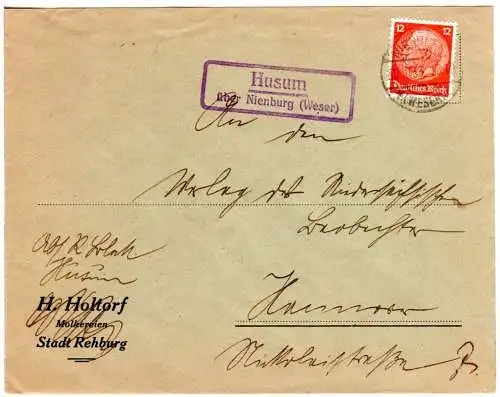 12 12
Deutsches Reich
Husum
über Nienburg (Weser)
An den
Verlag des Niedersächsischen
Beobachter
Hannover
Nikolaistraße 7.
Abs.
Husum
H. Holtorf
Molkereien
Stadt Rehburg